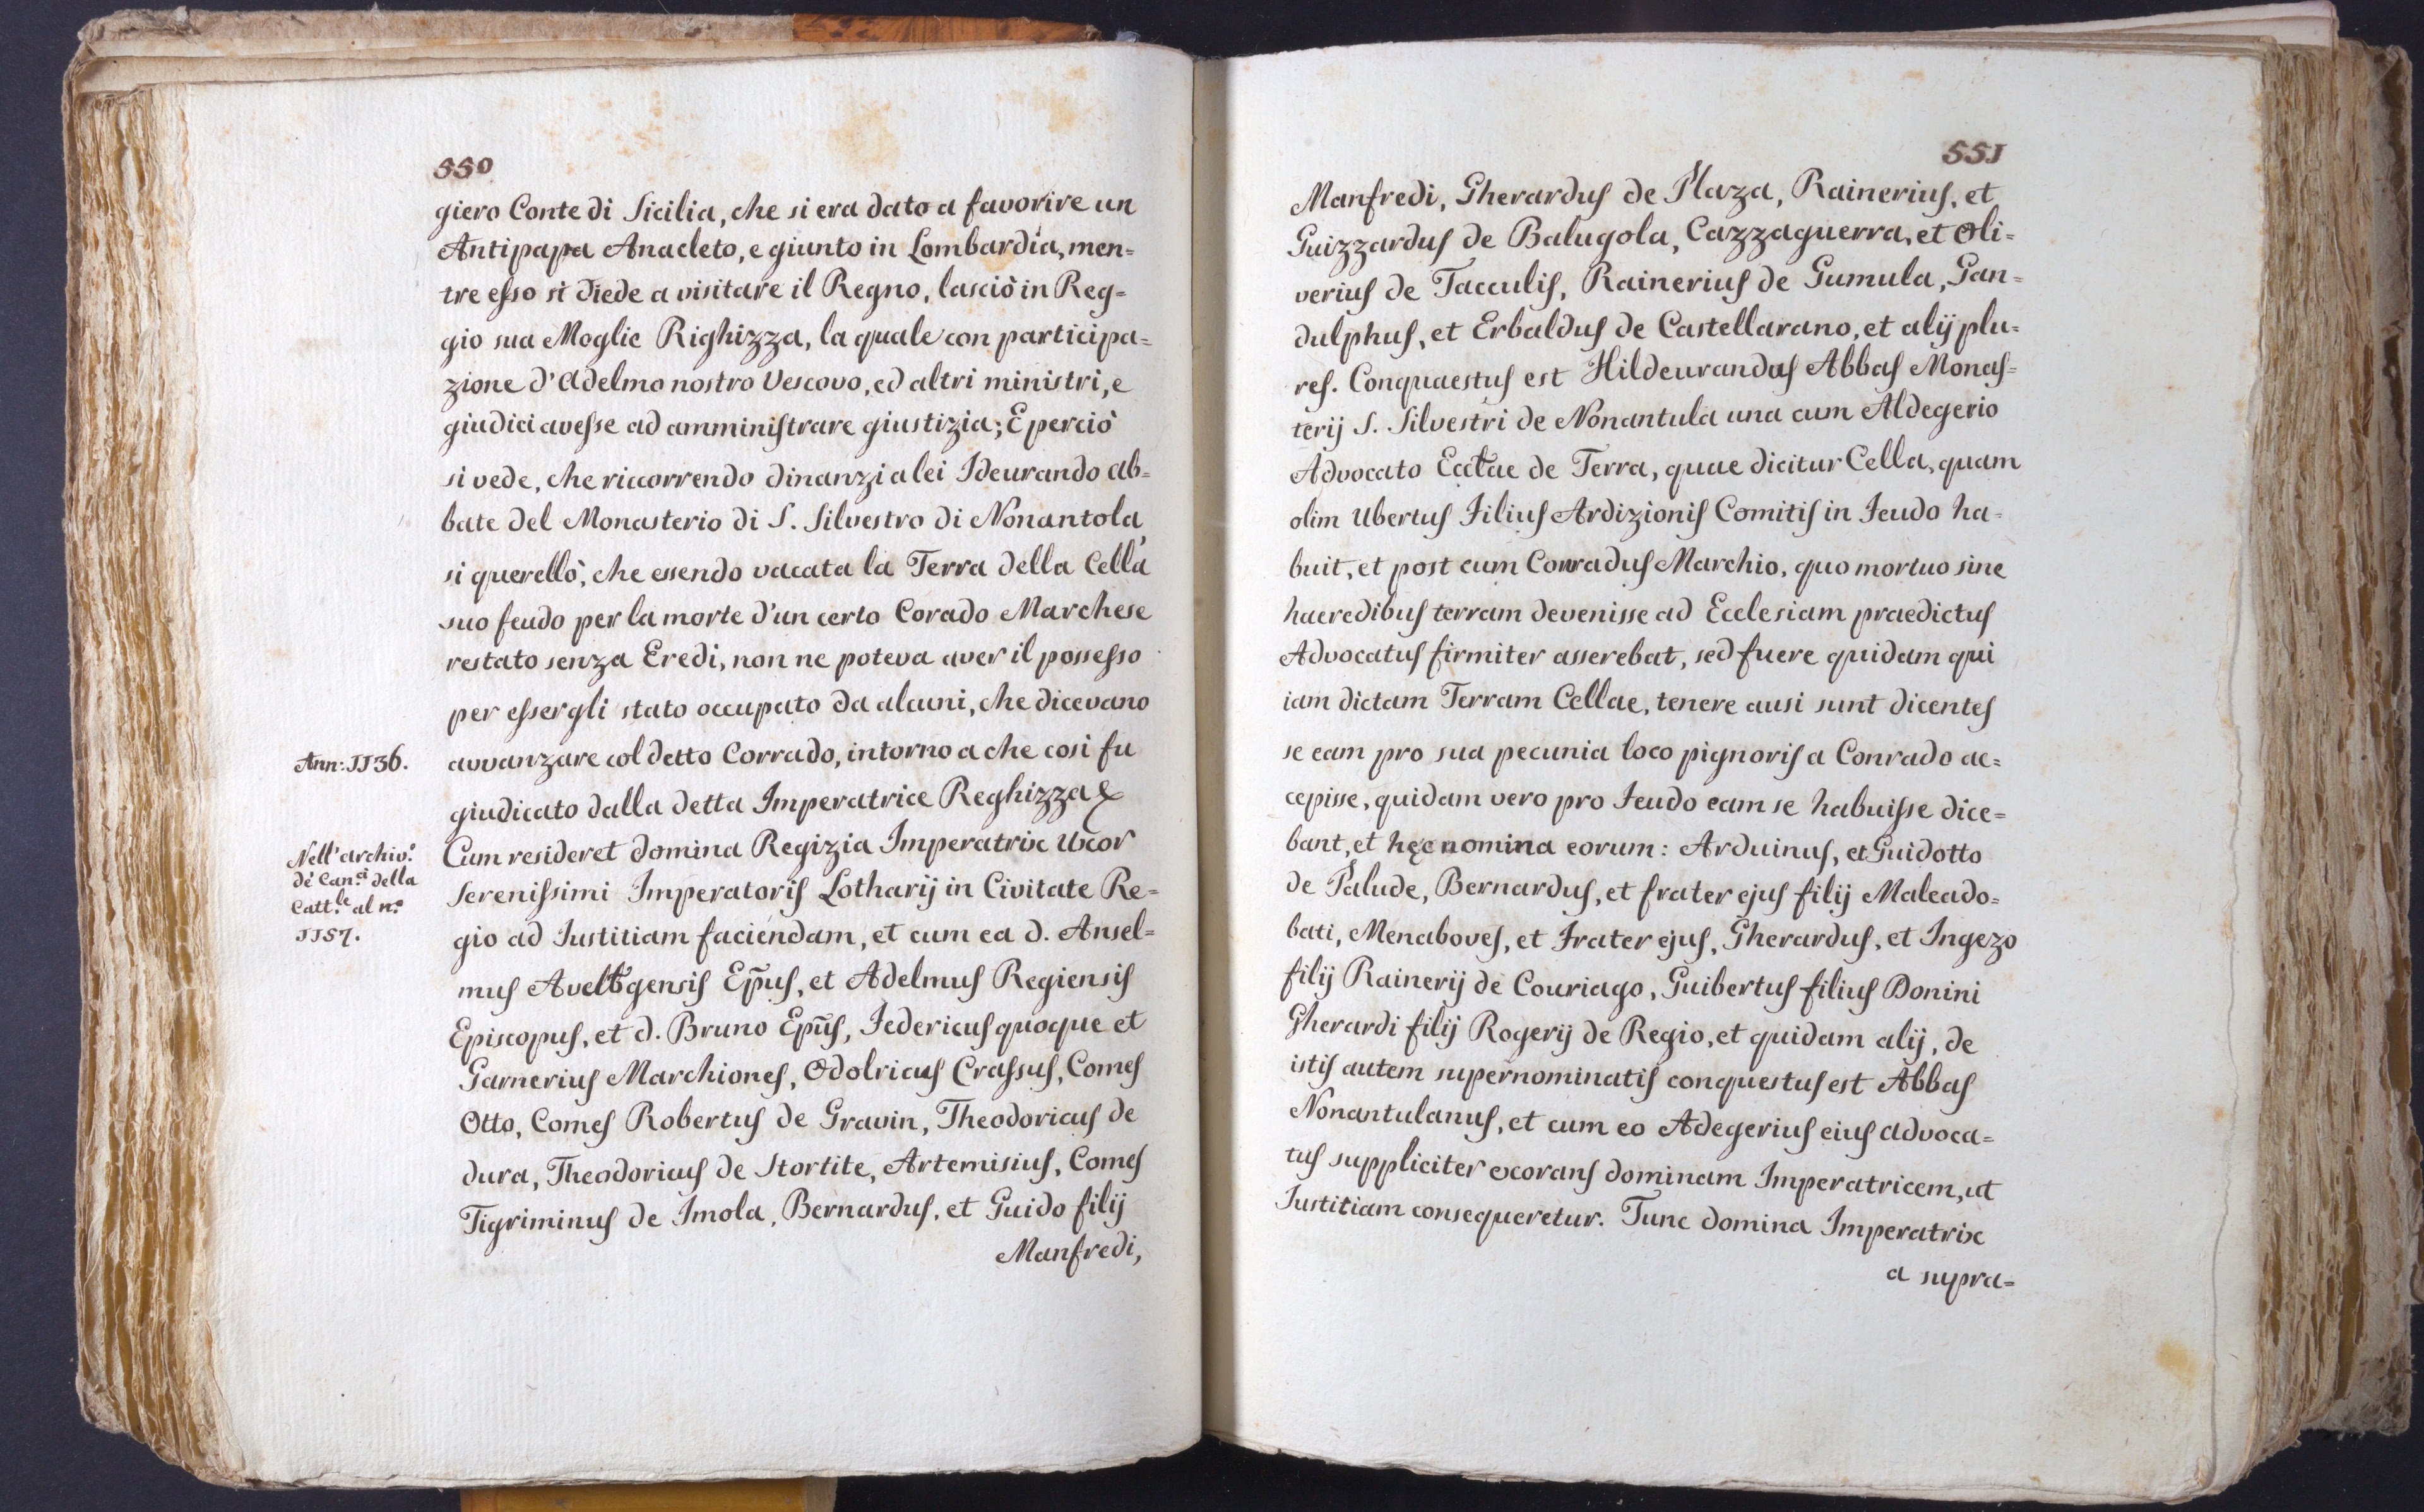 550
giero Conte di Sicilia, che si era dato a favorire un
Antipapa Anacleto, e giunto in Lombardia, men=
tre esso si diede a visitare il Regno, lasciò in Reg=
gio sua Moglie Righizza, la quale con participa=
zione d'Adelmo nostro Vescovo, ed altri ministri, e
giudici avesse ad amministrare giustizia; E perciò
si vede, che riccorrendo dinanzi a lei Ideurando Ab=
bate del Monasterio di S. Silvestro di Nonantola
si querellò, che essendo vacata la Terra della Cella
suo feudo per la morte d'un certo Corado Marchese
restato senza Eredi, non ne poteva aver il possesso
per essergli stato occupato da alcuni, che dicevano
Ann: 1136.
avvanzare col detto Corrado, intorno a che così fu
giudicato dalla detta Imperatrice Reghizza &
Nell'archiv.o
de Can.ci della
Catt.le al n.o
1157.
Cum resideret domina Regizia Imperatrix Uxor
Serenissimi Imperatoris Lotharij in Civitate Re=
gio ad Iustitiam faciendam, et cum ea d. Ansel=
mus Avelbgensis Epũs, et Adelmus Regiensis
Episcopus, et d. Bruno Epũs, Federicus quoque et
Garnerius Marchiones, Odolricus Crassus, Comes
Otto, Comes Robertus de Gravin, Theodoricus de
dura, Theodoricus de Stortite, Artemisius, Comes
Tigriminus de Imola, Bernardus, et Guido filij
Manfredi,
551
Manfredi, Gherardus de Plaza, Rainerius, et
Guizzardus de Balugola, Cazzaguerra, et Oli=
verius de Tacculis, Rainerius de Gumula, Gan=
dulphus, et Erbaldus de Castellarano, et alij plu=
res. Conquaestus est Hildeurandus Abbas Monas=
terij S. Silvestri de Nonantula una cum Aldegerio
Advocato Ecctae de Terra, quae dicitur Cella, quam
olim Ubertus Filius Ardizionis Comitis in Feudo ha=
buit, et post eum Conradus Marchio, quo mortuo sine
haeredibus terram devenisse ad Ecclesiam praedictus
Advocatus firmiter asserebat, sed fuere quidam qui
iam dictam Terram Cellae, tenere ausi sunt dicentes
se eam pro sua pecunia loco pignoris a Conrado ac=
cepisse, quidam vero pro Feudo eam se habuisse dice=
bant, et hęc nomina eorum: Arduinus, et Guidotto
de Palude, Bernardus, et frater ejus filij Maleado=
bati, Menaboves, et Frater ejus, Gherardus, et Ingezo
filij Rainerij de Couriago, Guibertus filius Donini
Gherardi filij Rogerij de Regio, et quidam alij, de
istis autem supernominatis conquestus est Abbas
Nonantulanus, et cum eo Adegerius eius Advoca=
tus suppliciter exorans dominam Imperatricem, ut
Iustitiam consequeretur. Tunc domina Imperatrix
a supra=